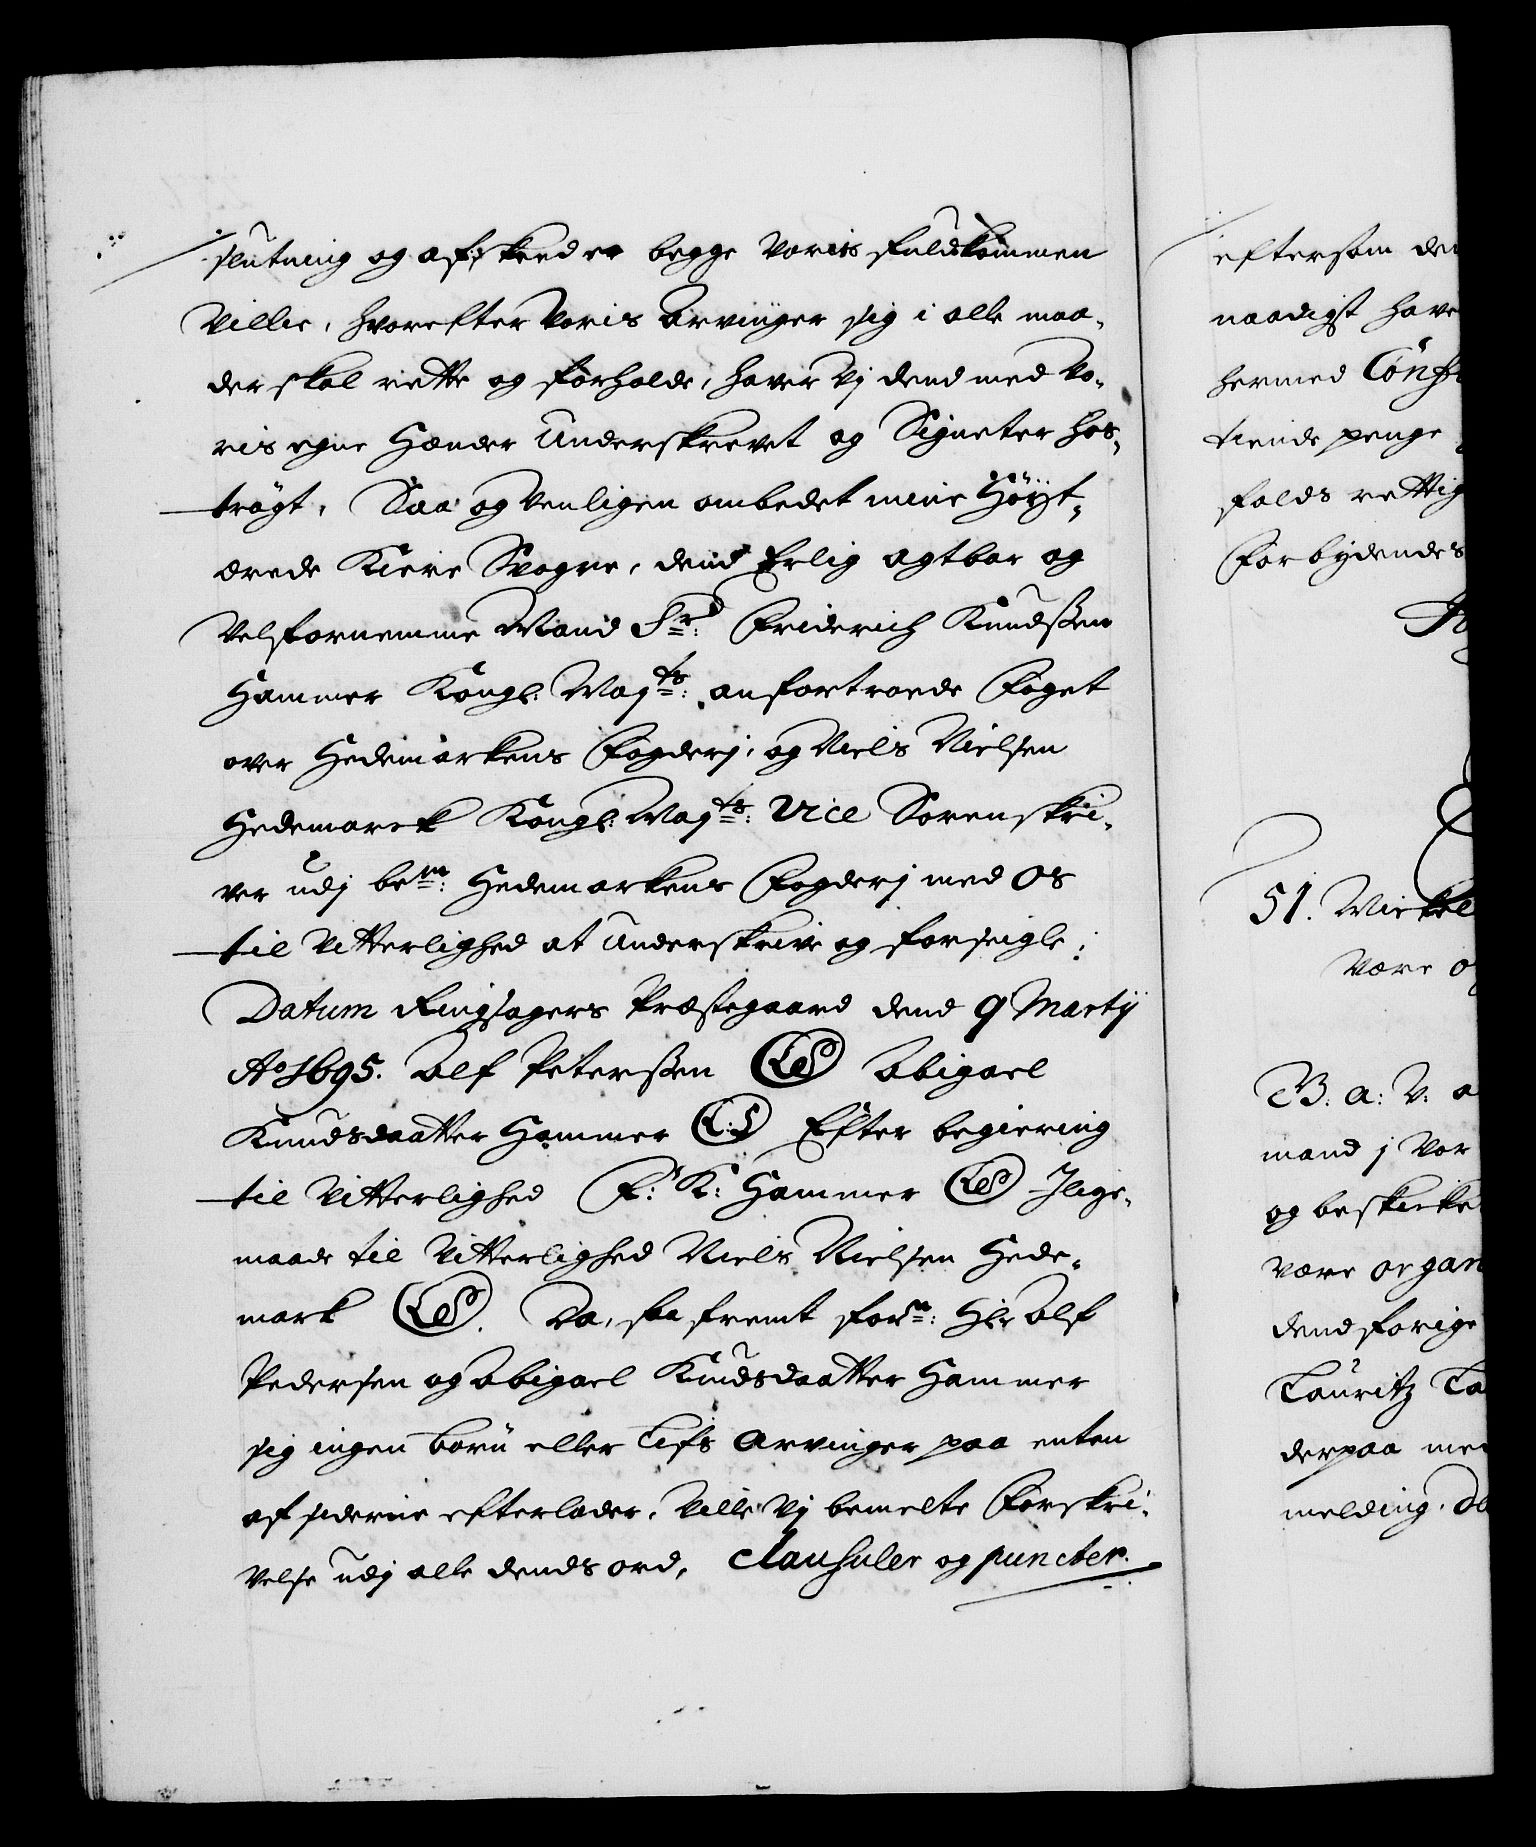 slutning og afskeed er begge Voris fuldkommen
Villie, hvorefter Voris Arvinger sig i alle maa-
der skal rette og forholde, haver Vj dend med Vo-
ris egne Hænder Underskrevet og Signeter hos-
trögt, Saa og Venligen ombedet mine Höÿt-
ærede Kiere Svogre, dend Erlig agtbar og
Velfornemme Mand Sr: Friderich Knudssen
Hammer Kongl: Mayts: anfortroede Foget
over Hedemarkens Fogderj, og Niels Nielsen
Hedemarck Kongl: Mayts: Vice Sorenskri-
ver udj bem: Hedemarkens Fogderj med Os
til Vitterlighed at Underskrive og forseigle:
Datum Ringsagers Præstegaard dend 9 Martij
Ao 1695. Alf Peterssen LS Abigael
Knudsdaatter Hammer L:S Efter begiering
til Vitterlighed F: K: Hammer LS Ilige-
maade til Vitterlighed Niels Nielsen Hede-
mark LS. Da, saafremt forn: Hr Alf
Pedersen og Abigael Knudsdaatter Hammer
sig ingen börn eller Lifs Arvinger paa enten
af siderne efterlader, Ville Vj bemelte Forskri-
velse udj alle dends ord, Clausuler og puncter.
eftersom de
naadigst have
hermed Conf
tiende penge
falds rettig
Forbydendes
51. Mickel
være o
B: A: V: a
mand j Vor
og beskicke
være organ
dend forige
Lauritz La
derpaa me
melding.